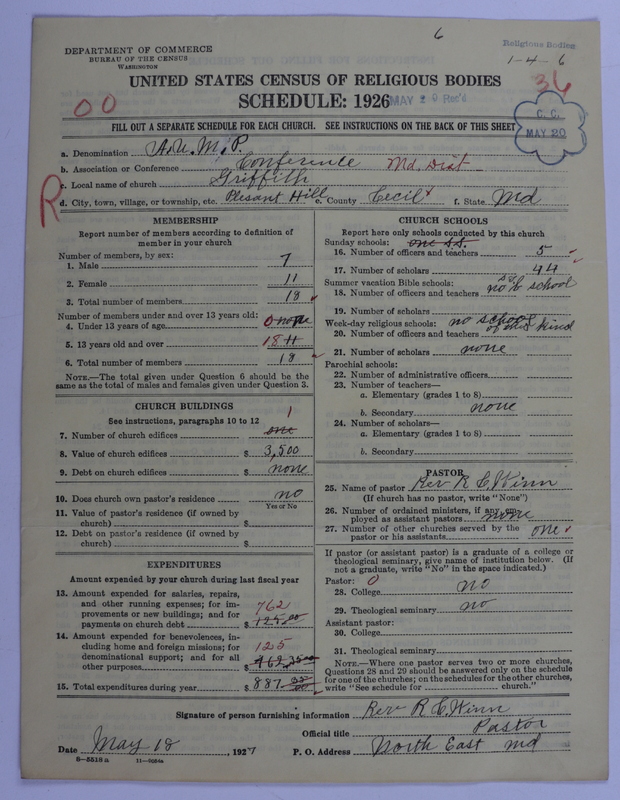 6
Religious Bodies
1-4-6
36
DEPARTMENT OF COMMERCE
BUREAU OF THE CENSUS
WASHINGTON
UNITED STATES CENSUS OF RELIGIOUS BODIES
SCHEDULE: 1926
MAY 20 Rec'd
00
C. C.
MAY 20
FILL OUT A SEPARATE SCHEDULE FOR EACH CHURCH. SEE INSTRUCTIONS ON THE BACK OF THIS SHEET
a. Denomination A.U.M.P.
b. Association or Conference Conference Md. Dist
c. Local name of church Griffith
R
d. City, town, village, or township, etc. Plesant Hill e. County Cecil x f. State Md
MEMBERSHIP
Report number of members according to definition of
member in your church
Number of members, by sex:
1. Male 7
2. Female 11
3. Total number of members 18
Number of members under and over 13 years old:
4. Under 13 years of age 0 none
5. 13 years old and over 18 11
6. Total number of members 18
NOTE.—The total given under Question 6 should be
same as the total of males and females given under Question 3.
CHURCH BUILDINGS
See instructions, paragraphs 10 to 12
1
7. Number of church edifices one
8. Value of church edifices $ 3,500
9. Debt on church edifices $ none
10. Does church own pastor's residence no
Yes or No
11. Value of pastor's residence (if owned by
church) $
12. Debt on pastor's residence (if owned by
church) $
EXPENDITURES
Amount expended by your church during last fiscal year
13. Amount expended for salaries, repairs,
and other running expenses; for im-
provements or new buildings; and for
payments on church debt $ 762 125.00
14. Amount expended for benevolences, in-
cluding home and foreign missions; for
denominational support; and for all
other purposes $ 125
15. Total expenditures during year $ 887
CHURCH SCHOOLS
Report here only schools conducted by this church
Sunday schools: one S.S.
16. Number of officers and teachers 5
17. Number of scholars 44
Summer vacation Bible schools:
18. Number of officers and teachers no school
19. Number of scholars
Week-day religious schools: no school
20. Number of officers and teachers of this kind
21. Number of scholars none
Parochial schools:
22. Number of administrative officers
23. Number of teachers—
a. Elementary (grades 1 to 8)
b. Secondary none
24. Number of scholars—
a. Elementary (grades 1 to 8)
b. Secondary
PASTOR
25. Name of pastor Rev R C Winn
(If church has no pastor, write "None")
26. Number of ordained ministers, if any, em-
ployed as assistant pastors none
27. Number of other churches served by the
pastor or his assistants one
If pastor (or assistant pastor) is a graduate of a college or
theological seminary, give name of institution below. (If
not a graduate, write "No" in the space indicated.)
Pastor: 0
28. College no
29. Theological seminary no
Assistant pastor:
30. College
31. Theological seminary
NOTE.—Where one pastor serves two or more churches,
Questions 28 and 29 should be answered only on the schedule
for one of the churches; on the schedules for the other churches,
write "See schedule for church."
Signature of person furnishing information Rev R C Winn
Official title Pastor
Date May 18, 1927 P. O. Address North East Md
8—5518 a 11—9084a